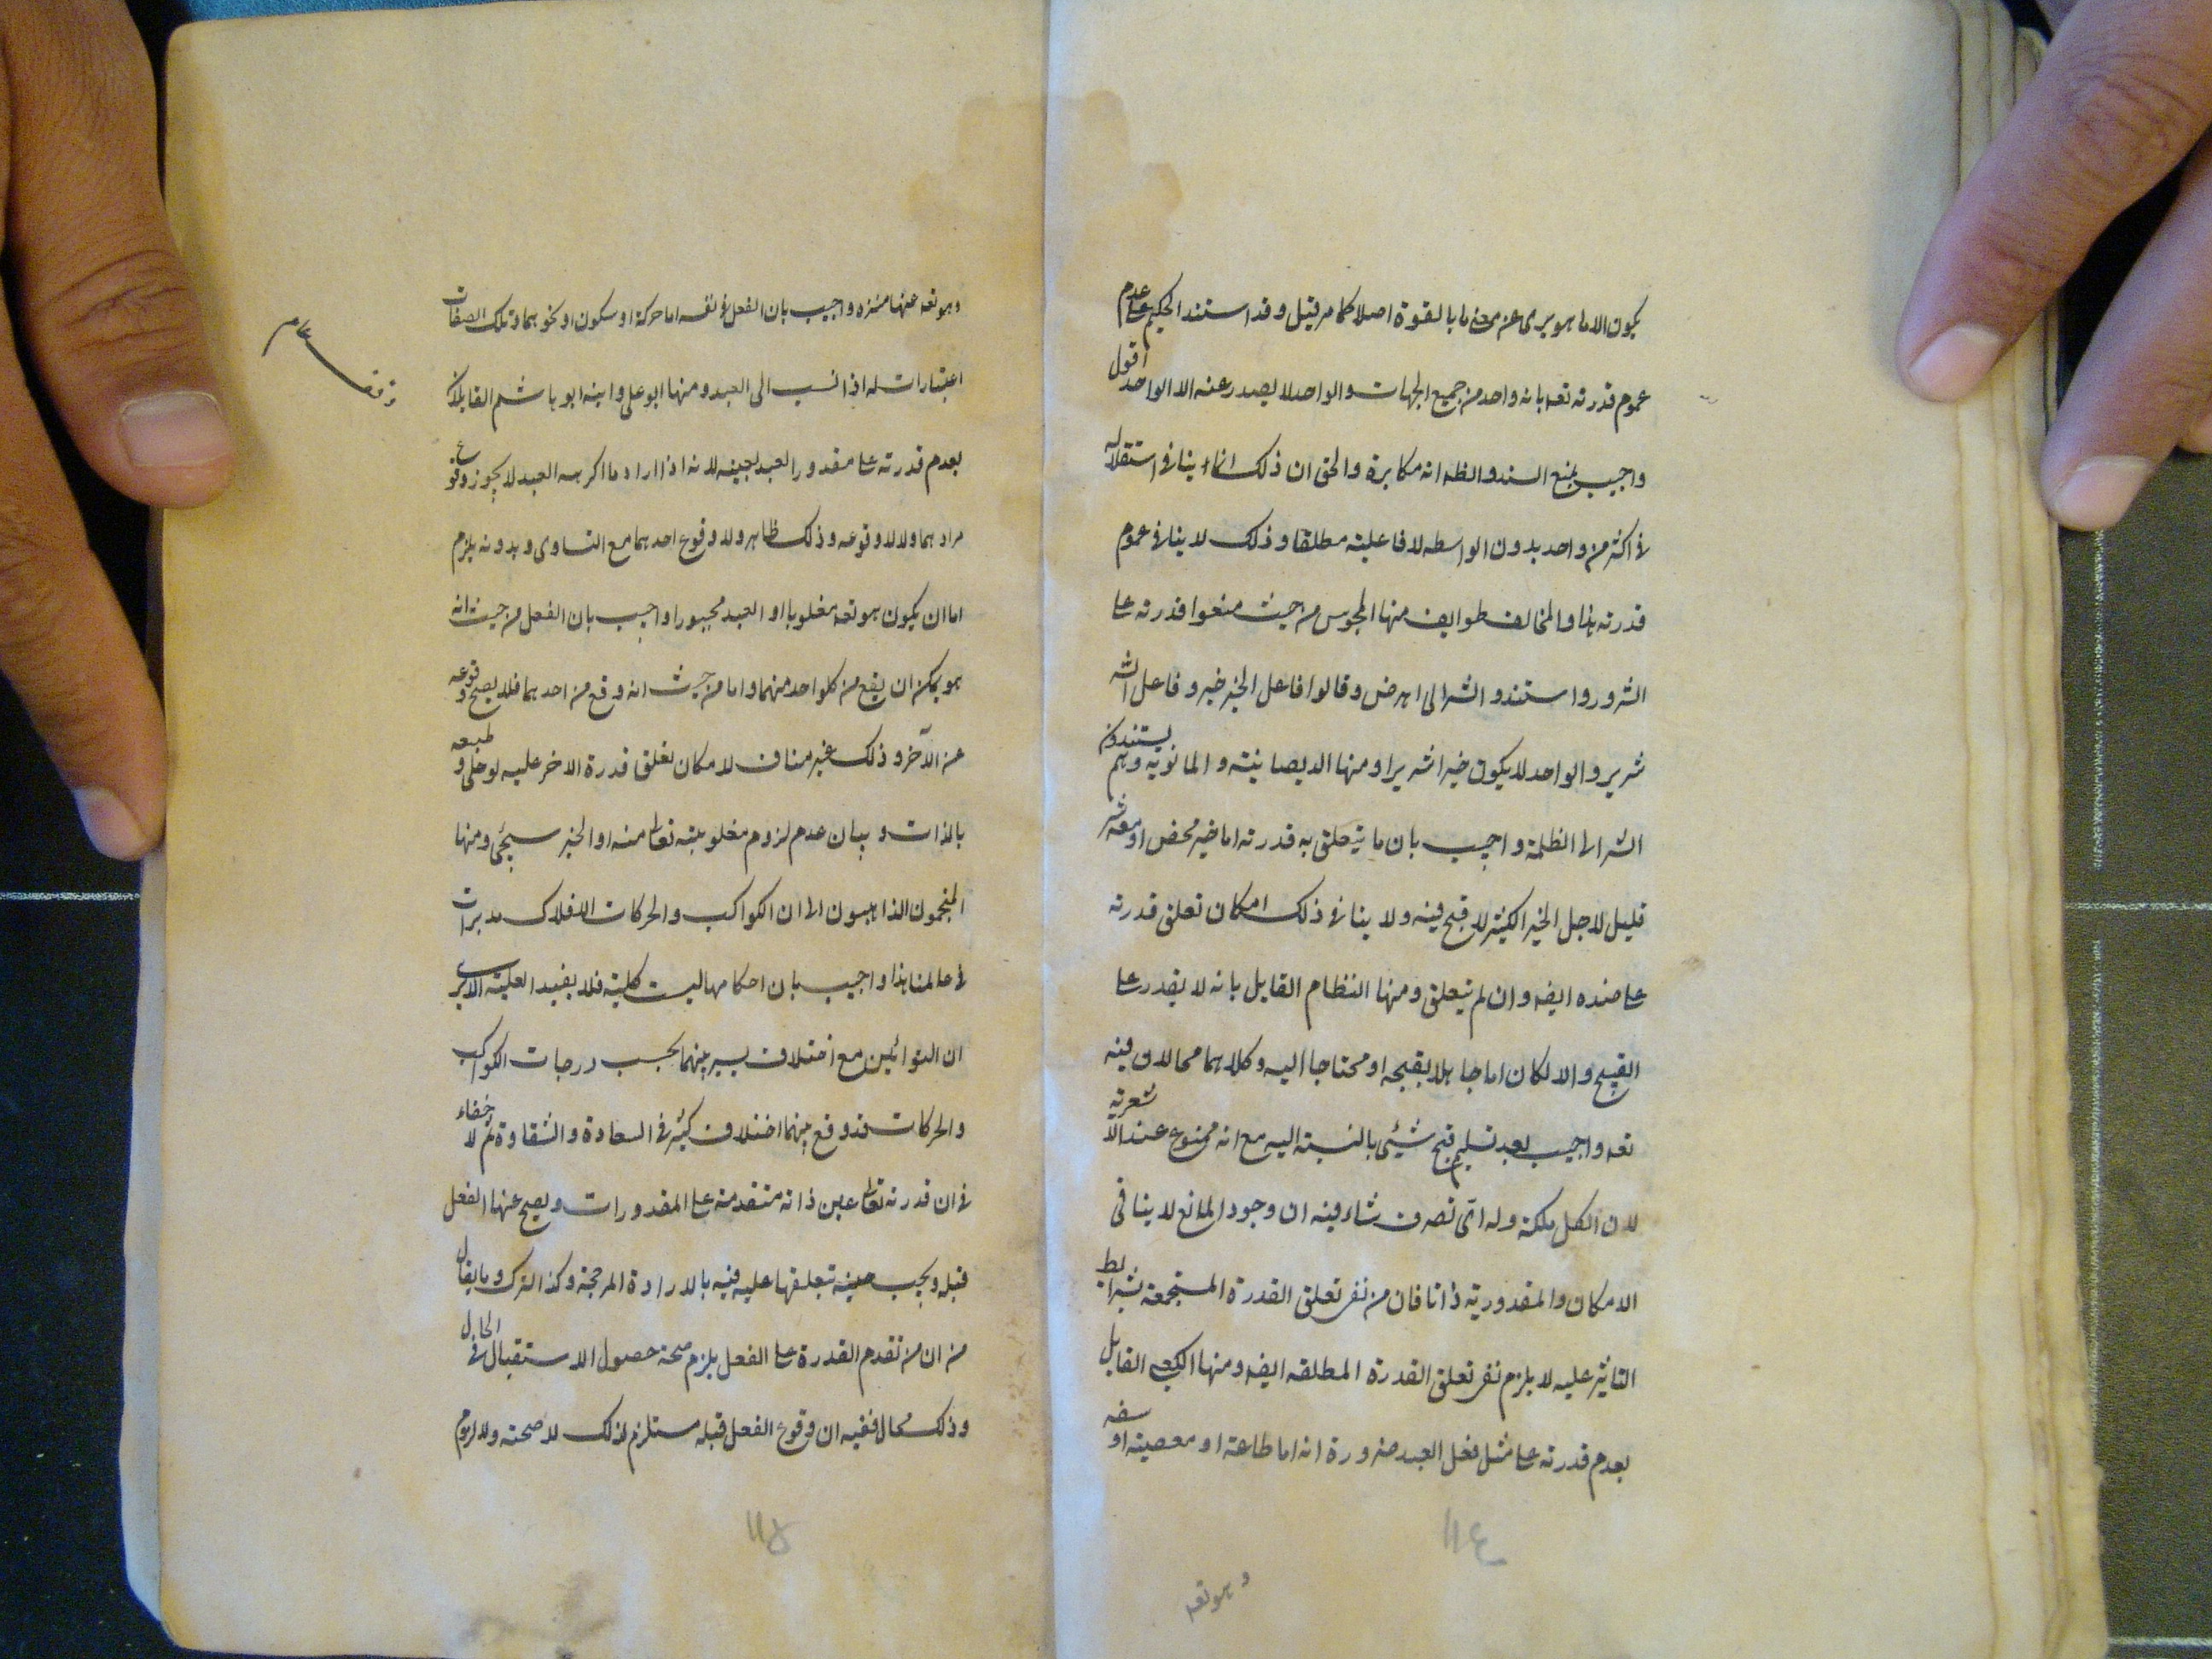 يكون الا ما هو برى عن معنى ما بالقوة اصلا كما مر قيل وقد استند الحكيم على عدم
عموم قدرته تعه بانه واحد من جميع الجهات والواحد لا يصدر عنه الا الواحد اقول
واجيب بمنع السند والظه انه مكابرة والحق ان ذلك انما ينافى استقلاله
فى اكثر من واحد بدون الواسطه لا فاعليته مطلقا وذلك لا ينافى عموم
قدرته هذا والمخالف طوايف منها المجوس من حيث منعوا قدرته على
الشرور واستندو الشر الى اهرمن وقالوا فاعل الخير خير وفاعل الشر
شرير والواحد لا يكون خيرا شريرا ومنها الديصانية والمانوية وهم يستندون
الشر الى الظلمة واجيب بان ما يتعلق به قدرته اما خير محض او معه شر
قليل لاجل الخير الكثير لا قبح فيه ولا ينافى ذلك امكان تعلق قدرته
على ضده ايضه وان لم يتعلق ومنها النظام القايل بانه لا يقدر على
القبيح والا لكان اما جاهلا بقبحه او محتاجا اليه وكلاهما محالان فيه
تعه واجيب بعد تسليم قبح شيئى بالنسبة اليه مع انه ممنوع عند الاشعرية
لان الكل ملكه وله اى تصرف شاء فيه ان وجود المانع لا ينافى
الامكان والمقدورية ذاتا فان من نفى تعلق القدرة المستجمعة بشرايط
التاثير عليه لا يلزم نفى تعلق القدرة المطلقه ايضه ومنها الكعبى القايل
بعدم قدرته على مثل فعل العبد ضرورة انه اما طاعة او معصية او سفه
١١٤
وهو تعه
وهو تعه عنها منزه واجيب بان الفعل فى نفسه اما حركة او سكون او نحوهما وتلك الصفات
اعتبارات له اذا نسب الى العبد ومنها ابو على وابنه ابو هاشم القايلان
بعدم قدرته على مقدور العبد بعينه لانه اذا اراد ما اكرهه العبد لا يجوز وقوع
مرادهما ولا لا وقوعه وذلك ظاهر ولا وقوع احدهما مع التساوى وبدونه يلزم
اما ان يكون هو تعه مغلوبا او العبد مجبورا واجيب بان الفعل من حيث انه
هو يمكن ان يقع من كلواحد منهما واما من حيث انه وقع من احدهما فلا يصح وقوعه
عن الآخر وذلك غير مناف لامكان تعلق قدرة الاخر عليه لو خلى وطبعه
بالذات وبيان عدم لزوم مغلوبيته تعالى منه او الجبر سيجئ ومنها
المنجمون الذاهبون الى ان الكواكب والحركات الافلاك مدبرات
فى عالمنا هذا واجيب بان احكامها ليست كلية فلا يفيد العلية الا يرى
ان التوائمين مع اختلاف يسير بينهما بحسب درجات الكواكب
والحركات قد وقع بينهما اختلاف كثير فى السعادة والشقاوة ثم لا خفاء
فى ان قدرته تعالى عين ذاته متقدمة على المقدورات ويصح عنها الفعل
قبله ويجب حينه تعلقها عليه فيه بالارادة المرجحة وكذا الترك وما يقال
من ان من تقدم القدرة على الفعل يلزم صحة حصول الاستقبال فى الحال
وذلك محال ففيه ان وقوع الفعل قبله مستلزم لذلك لا صحته ولا لزوم
١١٥